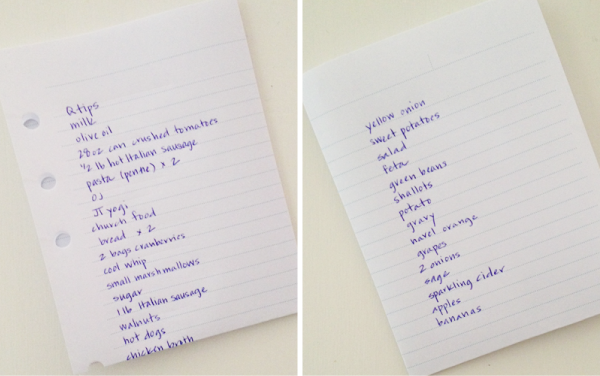 Qtips
milk
olive oil
28 oz can crushed tomatoes
1/2 lb hot Italian sausage
pasta (penne) x 2
OJ
JT yogi
church food
bread x 2
2 bags cranberries
cool whip
small marshmallows
sugar
1 lb Italian sausage
walnuts
hot dogs
chicken broth
yellow onion
sweet potatoes
salad
feta
green beans
shallots
potato
gravy
navel orange
grapes
2 onions
sage
sparkling cider
apples
bananas